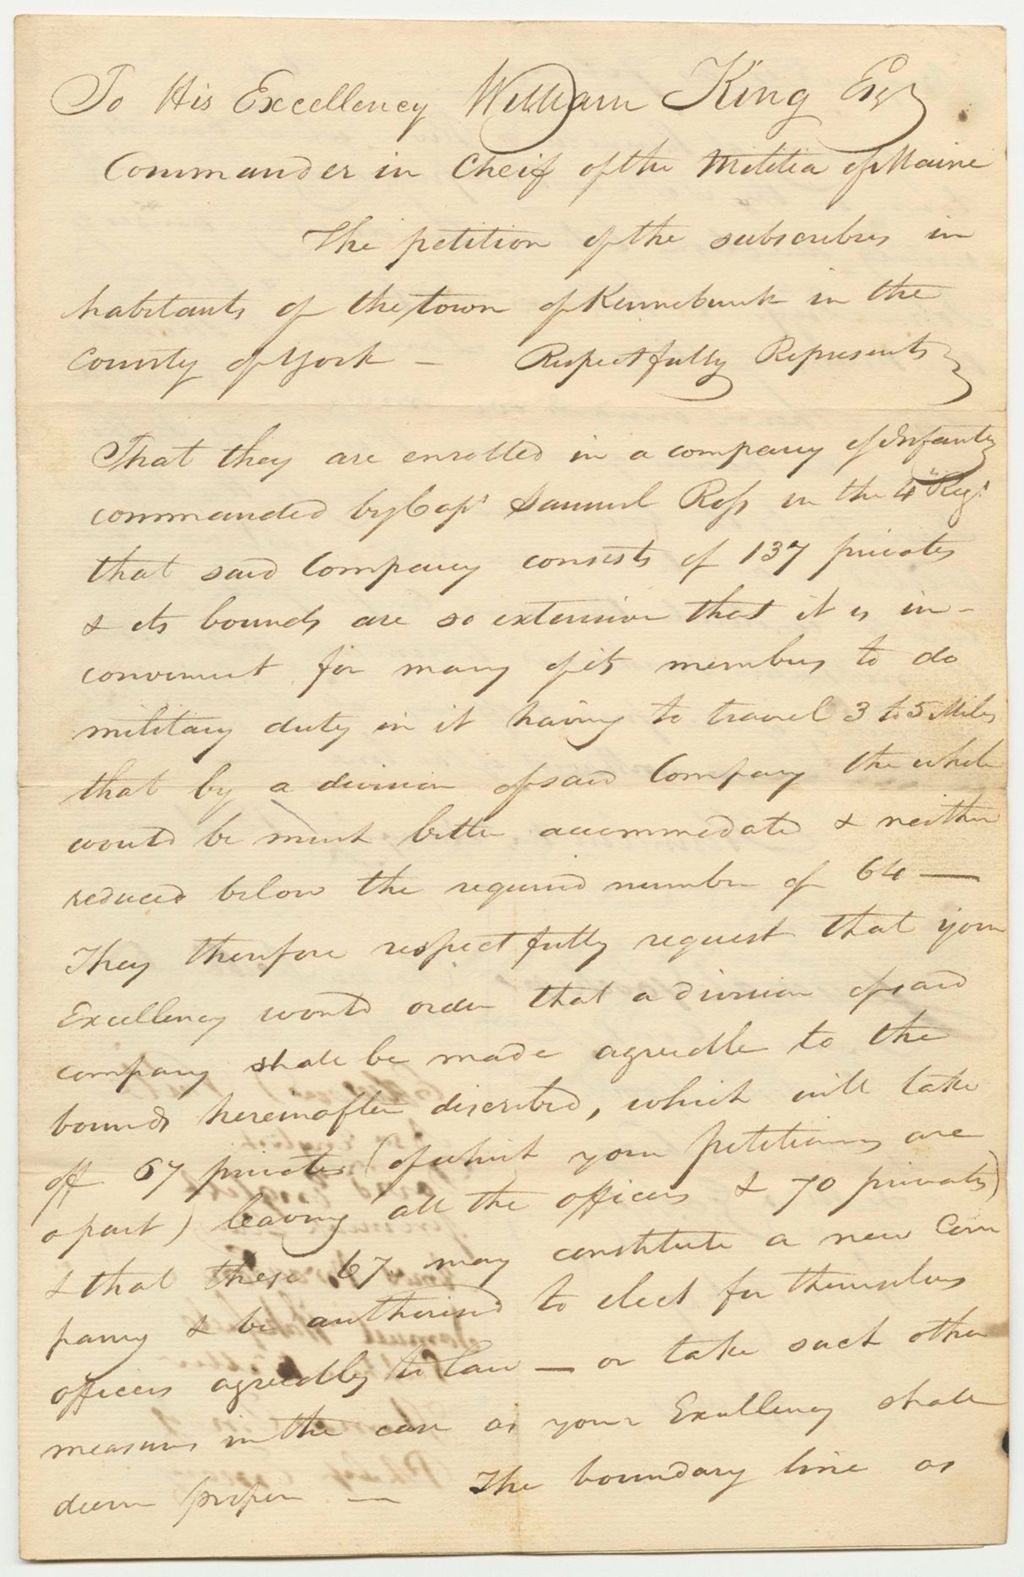 To His Excellency William King Esqr
Commander in Cheif of the Militia of Maine
The petition of the subscribers in
habitants of the town of Kennebunk in the
County of York — Respectfully Represents
That they are enrolled in a company of Infantry
commanded by Capt Samuel Ross in the 4th Regt
that said Company consists of 137 privates
& its bounds are so extensive that it is in-
convenient for many of its members to do
military duty in it having to travel 3 to 5 Miles
that by a division of said Company the whole
would be much better accommodated & neither
reduced below the required number of 64 —
They therefore respectfully request that your
Excellency would order that a division of said
company shall be made agreeable to the
bounds hereinafter discribed, which will take
off 67 privates (of which your petitioners are
a part) leaving all the officers & 70 privates)
& that these 67 may constitute a new Com
pany & be authorised to elect for themselves
officers agreeably to law — or take such other
measures in the case as your Excellency shall
deem proper — The boundary line as